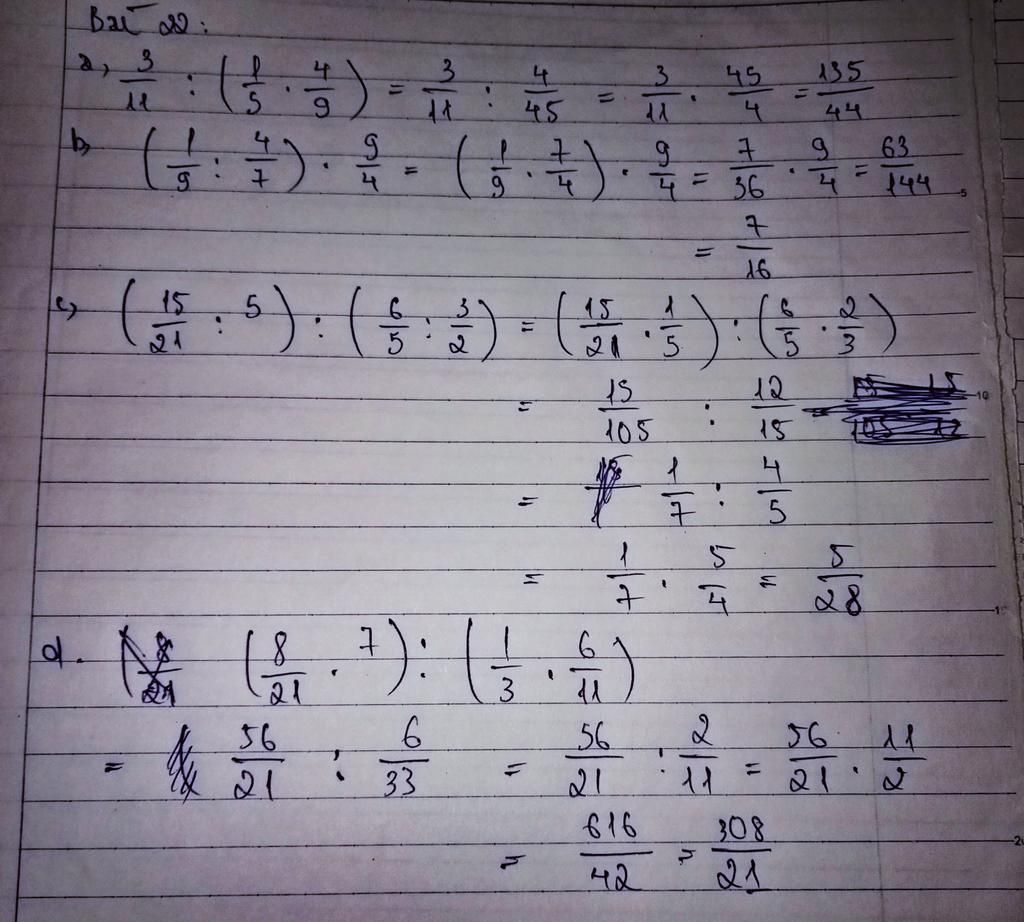 Bài 22:
a, 3/11 : (1/5 . 4/9) = 3/11 : 4/45 = 3/11 . 45/4 = 135/44
b, (1/9 : 4/7) . 9/4 = (1/9 . 7/4) . 9/4 = 7/36 . 9/4 = 63/144
= 7/16
c, (15/21 : 5) : (6/5 : 3/2) = (15/21 . 1/5) : (6/5 . 2/3)
= 15/105 : 12/15
= 1/7 : 4/5
= 1/7 . 5/4 = 5/28
d. (8/21 . 7) : (1/3 . 6/11)
= 56/21 : 6/33 = 56/21 : 2/11 = 56/21 . 11/2
= 616/42 = 308/21